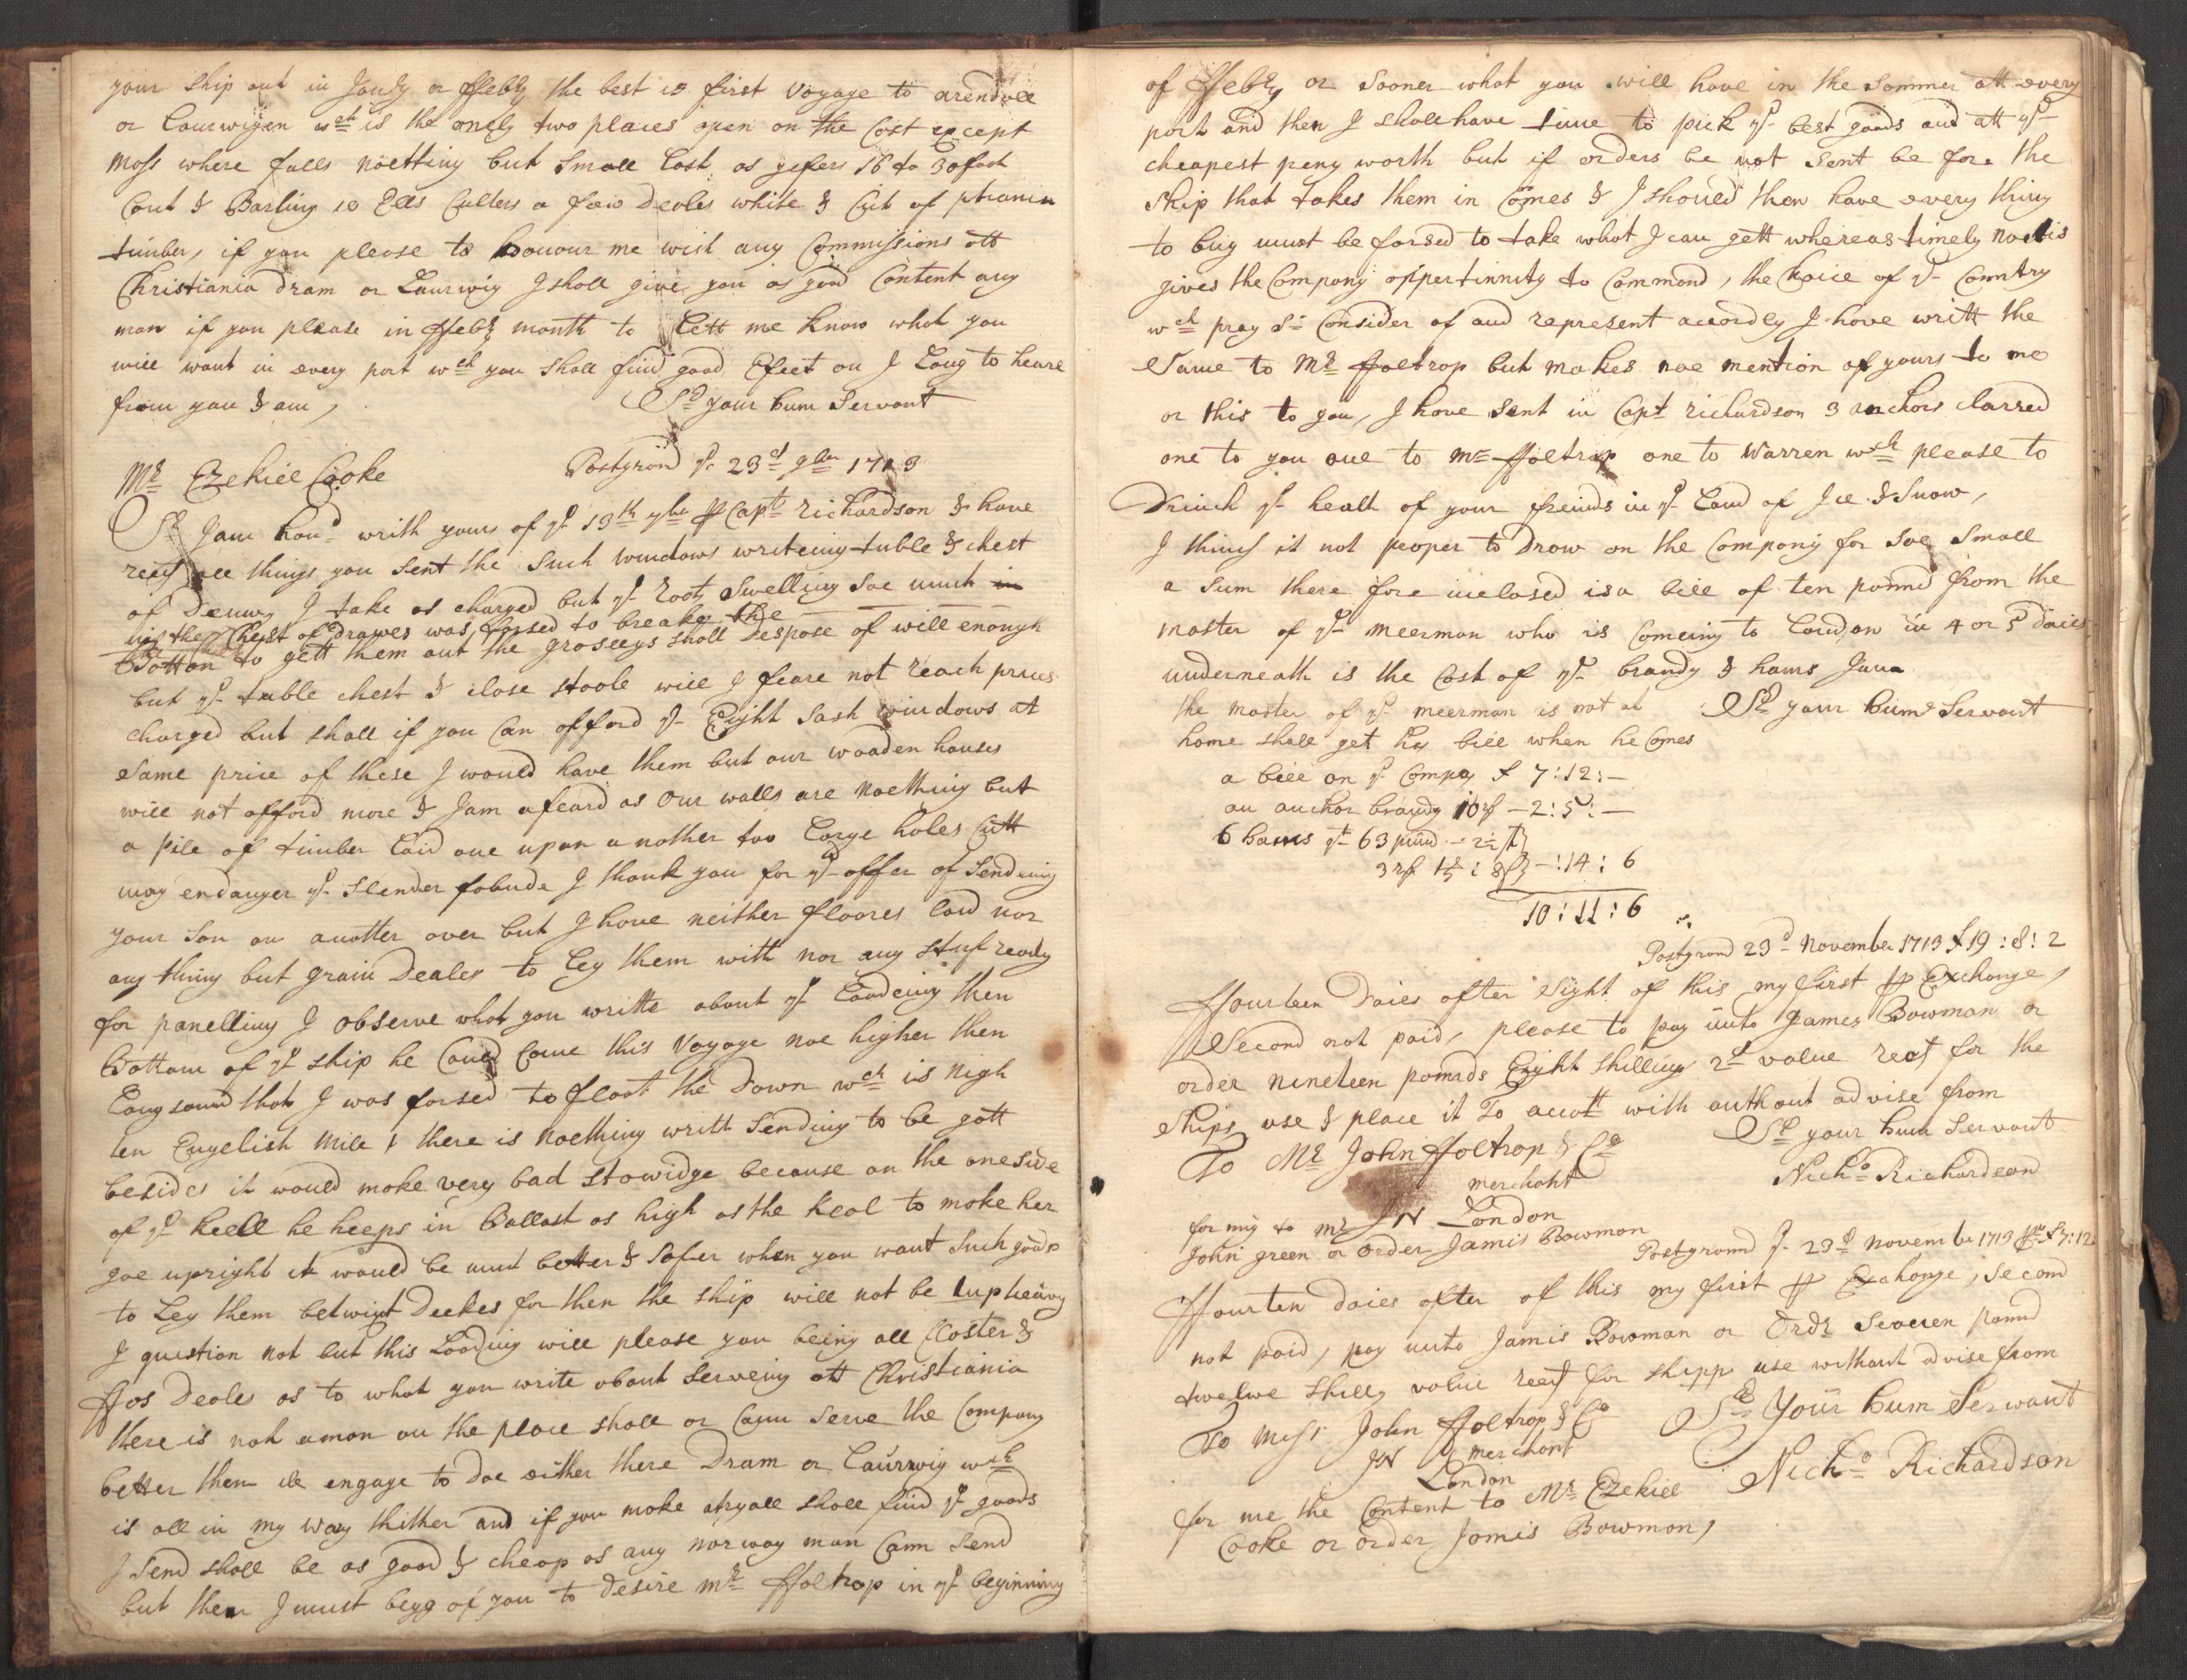 your ship out in Janry or ffebry the best is first voyage to arendall
or Laurwigen wch is the onely two places open on the Cost except
Moss where falls noetting but small Last as gefers 16 to 30 foot
Cont & Barling 10 Ells Culters a few Deales white & Cut of
timber, if you please to honour me with any Commissions att
Christiania Dram or Laurwig I shall give you as good Content any
man if you please in ffebr month to Lett me know what you
will want in every port wch you shall find good Efect on I Long to heare
from you & am, Sr your hum Servant
Mr Ezekiell Cooke Postgrond ye 23d 9ber 1713
Sr I am hond with yours of ye 19th 7ber pr Capt richardson & have
recd all things you sent the Such windows writeing table & chest
of Drawrs I take as charged but ye Roots Swelling soe much in
the Chest of Drawes was forsed to breake the
Botton to gett them out the grosseys shall despose of will enough
but ye table chest & close stoole will I feare not reach prices
charged but shall if you Can afford ye Eight Sash windows at
same price of these I would have them but our wooden houses
will not afford more & I am afeard as our walls are noething but
a pile of timber Laid one upon another too Large holes Cutt
may endanger ye slender I thank you for ye offer of sending
your son on anotter over but I have neither floores laid nor
any thing but grain Deales to Ley them with nor any stuf ready
for panelling I observe what you writte about ye Loadeing then
Bottom of ye ship he Coued Come this Voyage noe higher then
Longsound that I was forsed to float the down wch is nigh
ten Engelish Mile & there is noething writt sending to be gott
besides it would make very bad stowidge because on the oneside
of ye keell he keeps in Ballast as high as the keal to make her
goe upright it would be mut better & Safer when you want Such goods
to Ley them betwixt Deekes for then the ship will not be tupheavy
I question not but this Loading will please you being all Closter &
ffos Deales as to what you write about Serveing att Christiania
there is not a man on the place shall or Cann Serve the Company
better then ile engage to Doe either there Dram or Laurwig wch
is all in my way thither and if you make atryall shall find ye goods
I send shall be as good & cheap as any norway man Cann send
but then I must begg of you to desire Mr ffoltrop in ye beginning
of ffebry or Sooner what you will have in the Sommer att every
port and then I shall have time to pick ye best goods and att ye
cheapest peny worth but if orders be not sent be fore the
Ship that takes them in Comes & I should then have every thing
to buy must be forsed to take what I can gett whereas timely noetis
gives the Company oppertinnity to Command, the Choice of ye Country
wch pray Sr Consider of and represent accordly I have writt the
Same to Mr ffoltrop but makes noe mention of yours to me
or this to you, I have sent in Capt richardson 3 anchors clarred
one to you one to Mr ffoltrop one to Warren wch please to
Drinck ye healt of your freinds in ye Land of Ice & Snow,
I thinck it not proper to Draw on the Company for soe small
a sum there fore inclosed is a bill of ten pound from the
master of ye meerman who is Comeing to London in 4 or 5 daies
underneath is the Cost of ye brandy & hams I am
the master of ye meerman is not at Sr your hume Servant
home shall get his bill when he Comes
a bill on ye Compa £ 7:12:—
an anchor brandy 10 —2:5:—
6 hams yt 63 pund
—:14:6
10:11:6
Postgrond 23d November 1713 £19:8:2
ffourteen Daies after Sight of this my first pr Exchange,
Second not paid, please to pay unto James Bowman or
order nineteen pounds Eight shillings 2d value recd for the
Ships use & place it To accott with outhout advise from
To Mr John ffoltrop & Co Sr your hum Servant
merchant Nicho Richardson
IN London
for mig to Mr
John green or order Jamis Bowman
Postgrond ye 23d november 1713 £7:12
ffourten daies after of this my first pr Exchange, Second
not paid, pay unto Jamis Bowman or Ordr Seveen pound
twelwe shillg value recd for shipps use without advise from
To Messr John ffoltrop & Co Sr Your hum Servant
IN merchant
London Nicho Richardson
for me the Content to Mr Ezekiell
Cooke or order Jamis Bowman,